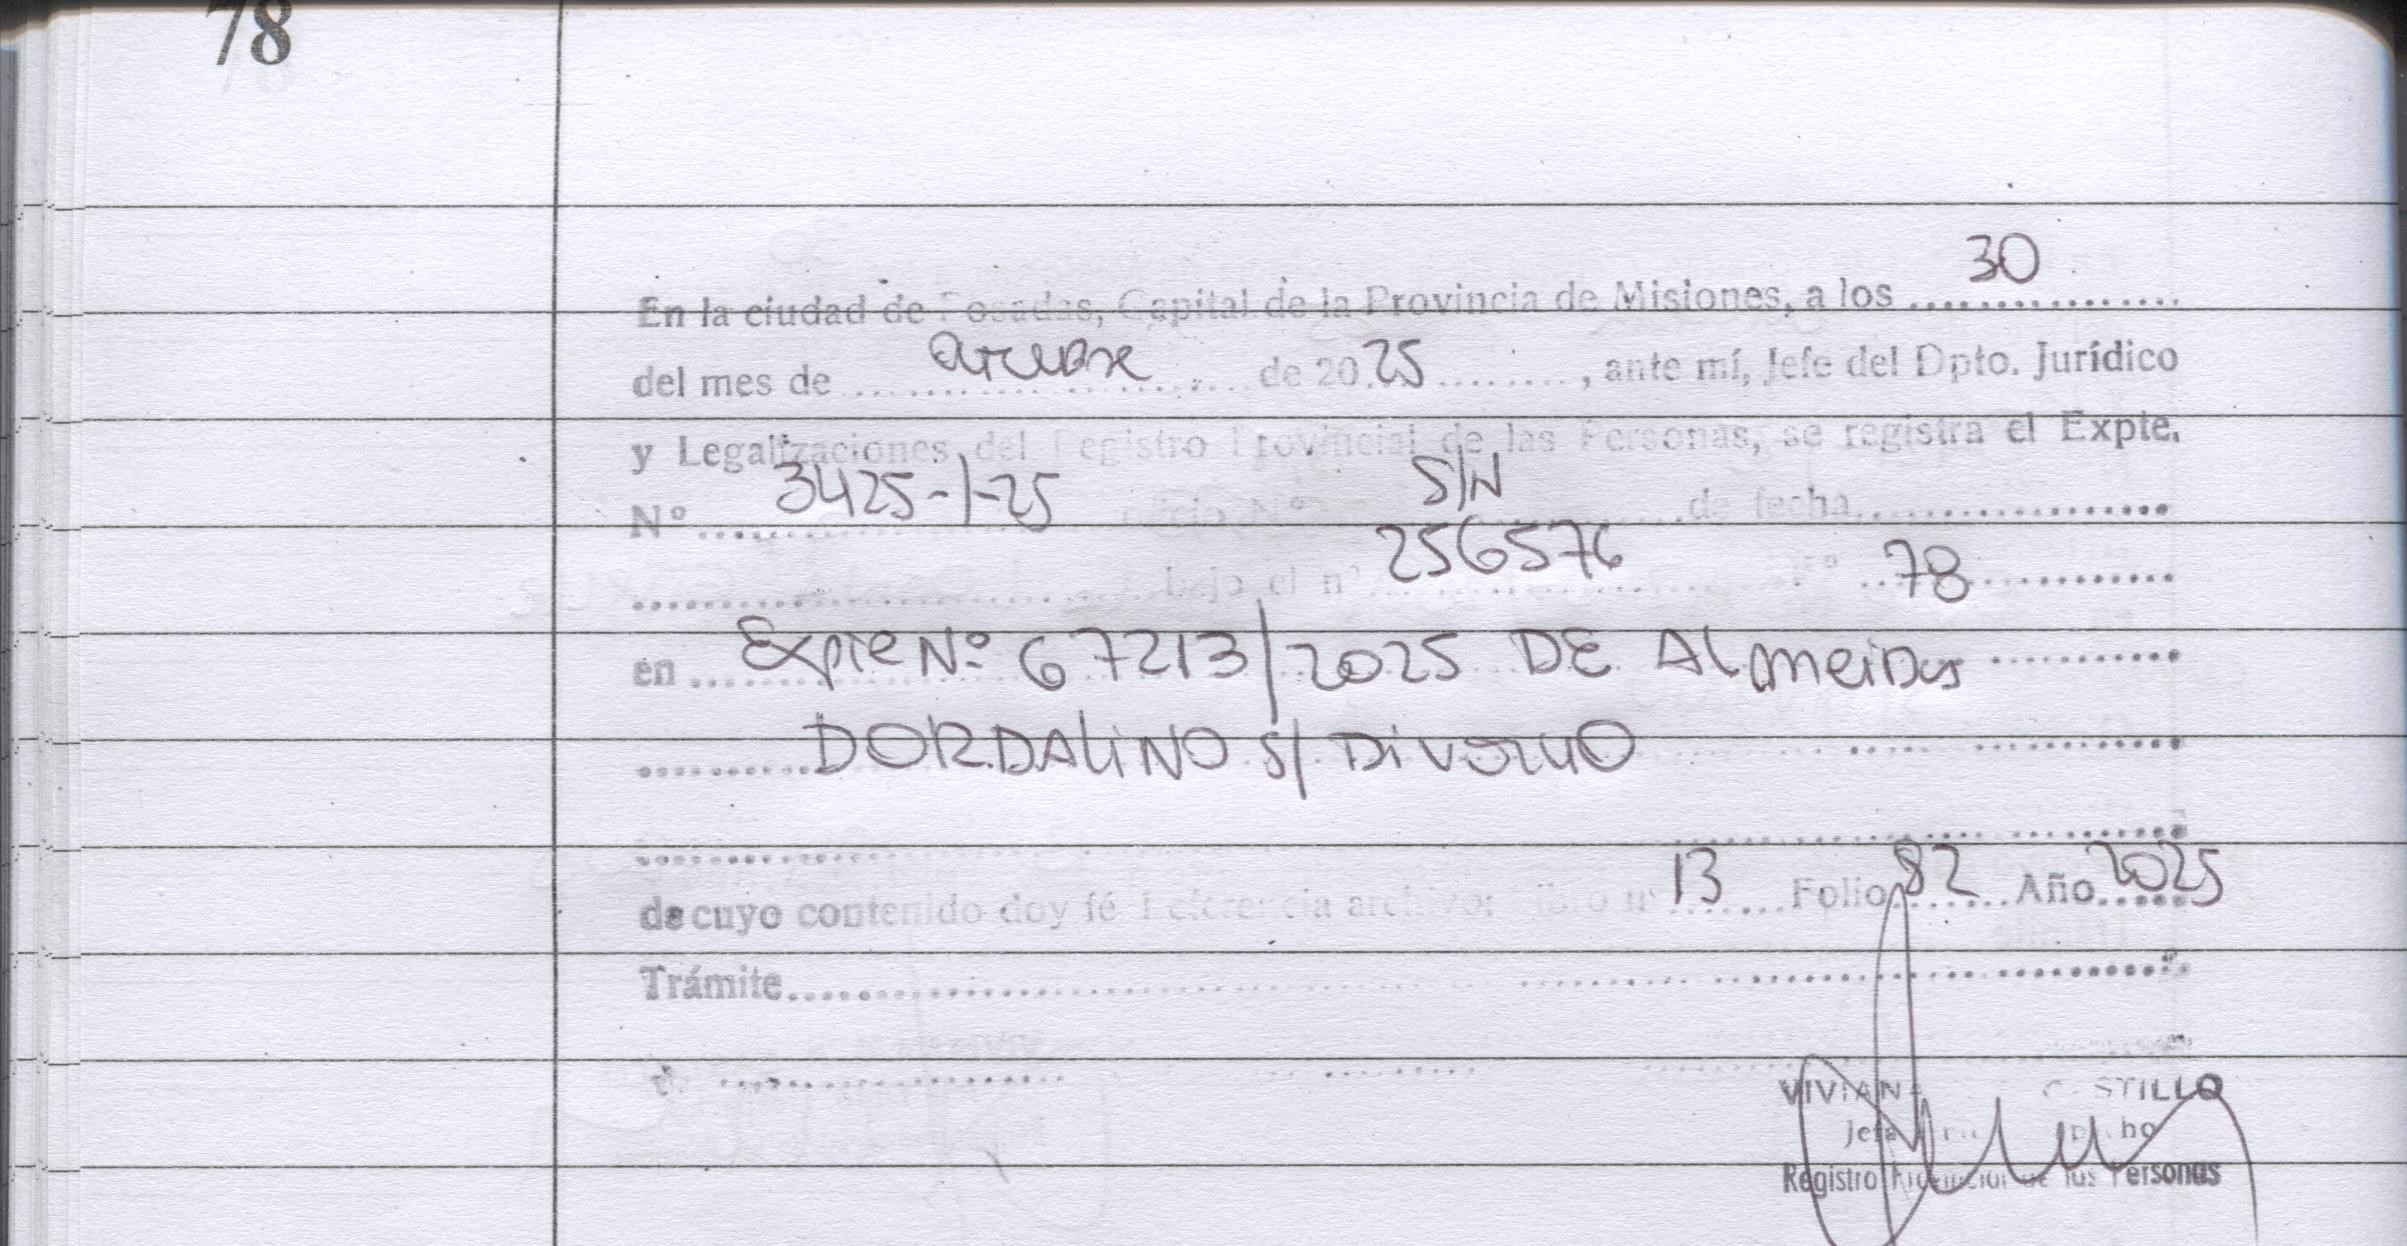 78
En la ciudad de Posadas, Capital de la Provincia de Misiones, a los 30
del mes de octubre de 2025, ante mí, Jefe del Dpto. Jurídico
y Legalizaciones del Registro Provincial de las Personas, se registra el Expte.
Nº 3425-1-25 oficio Nº S/N de fecha
bajo el nº 256576 Fº 78
en Expte Nº 67213/2025 DE ALmeiDa
DORDALiNO S/ DiVorcio
de cuyo contenido doy fé Referencia archivo: libro nº 13 Folio 82 Año 2025
Trámite
VIVIANA CASTILLO
Jefa
Registro Provincial de las Personas